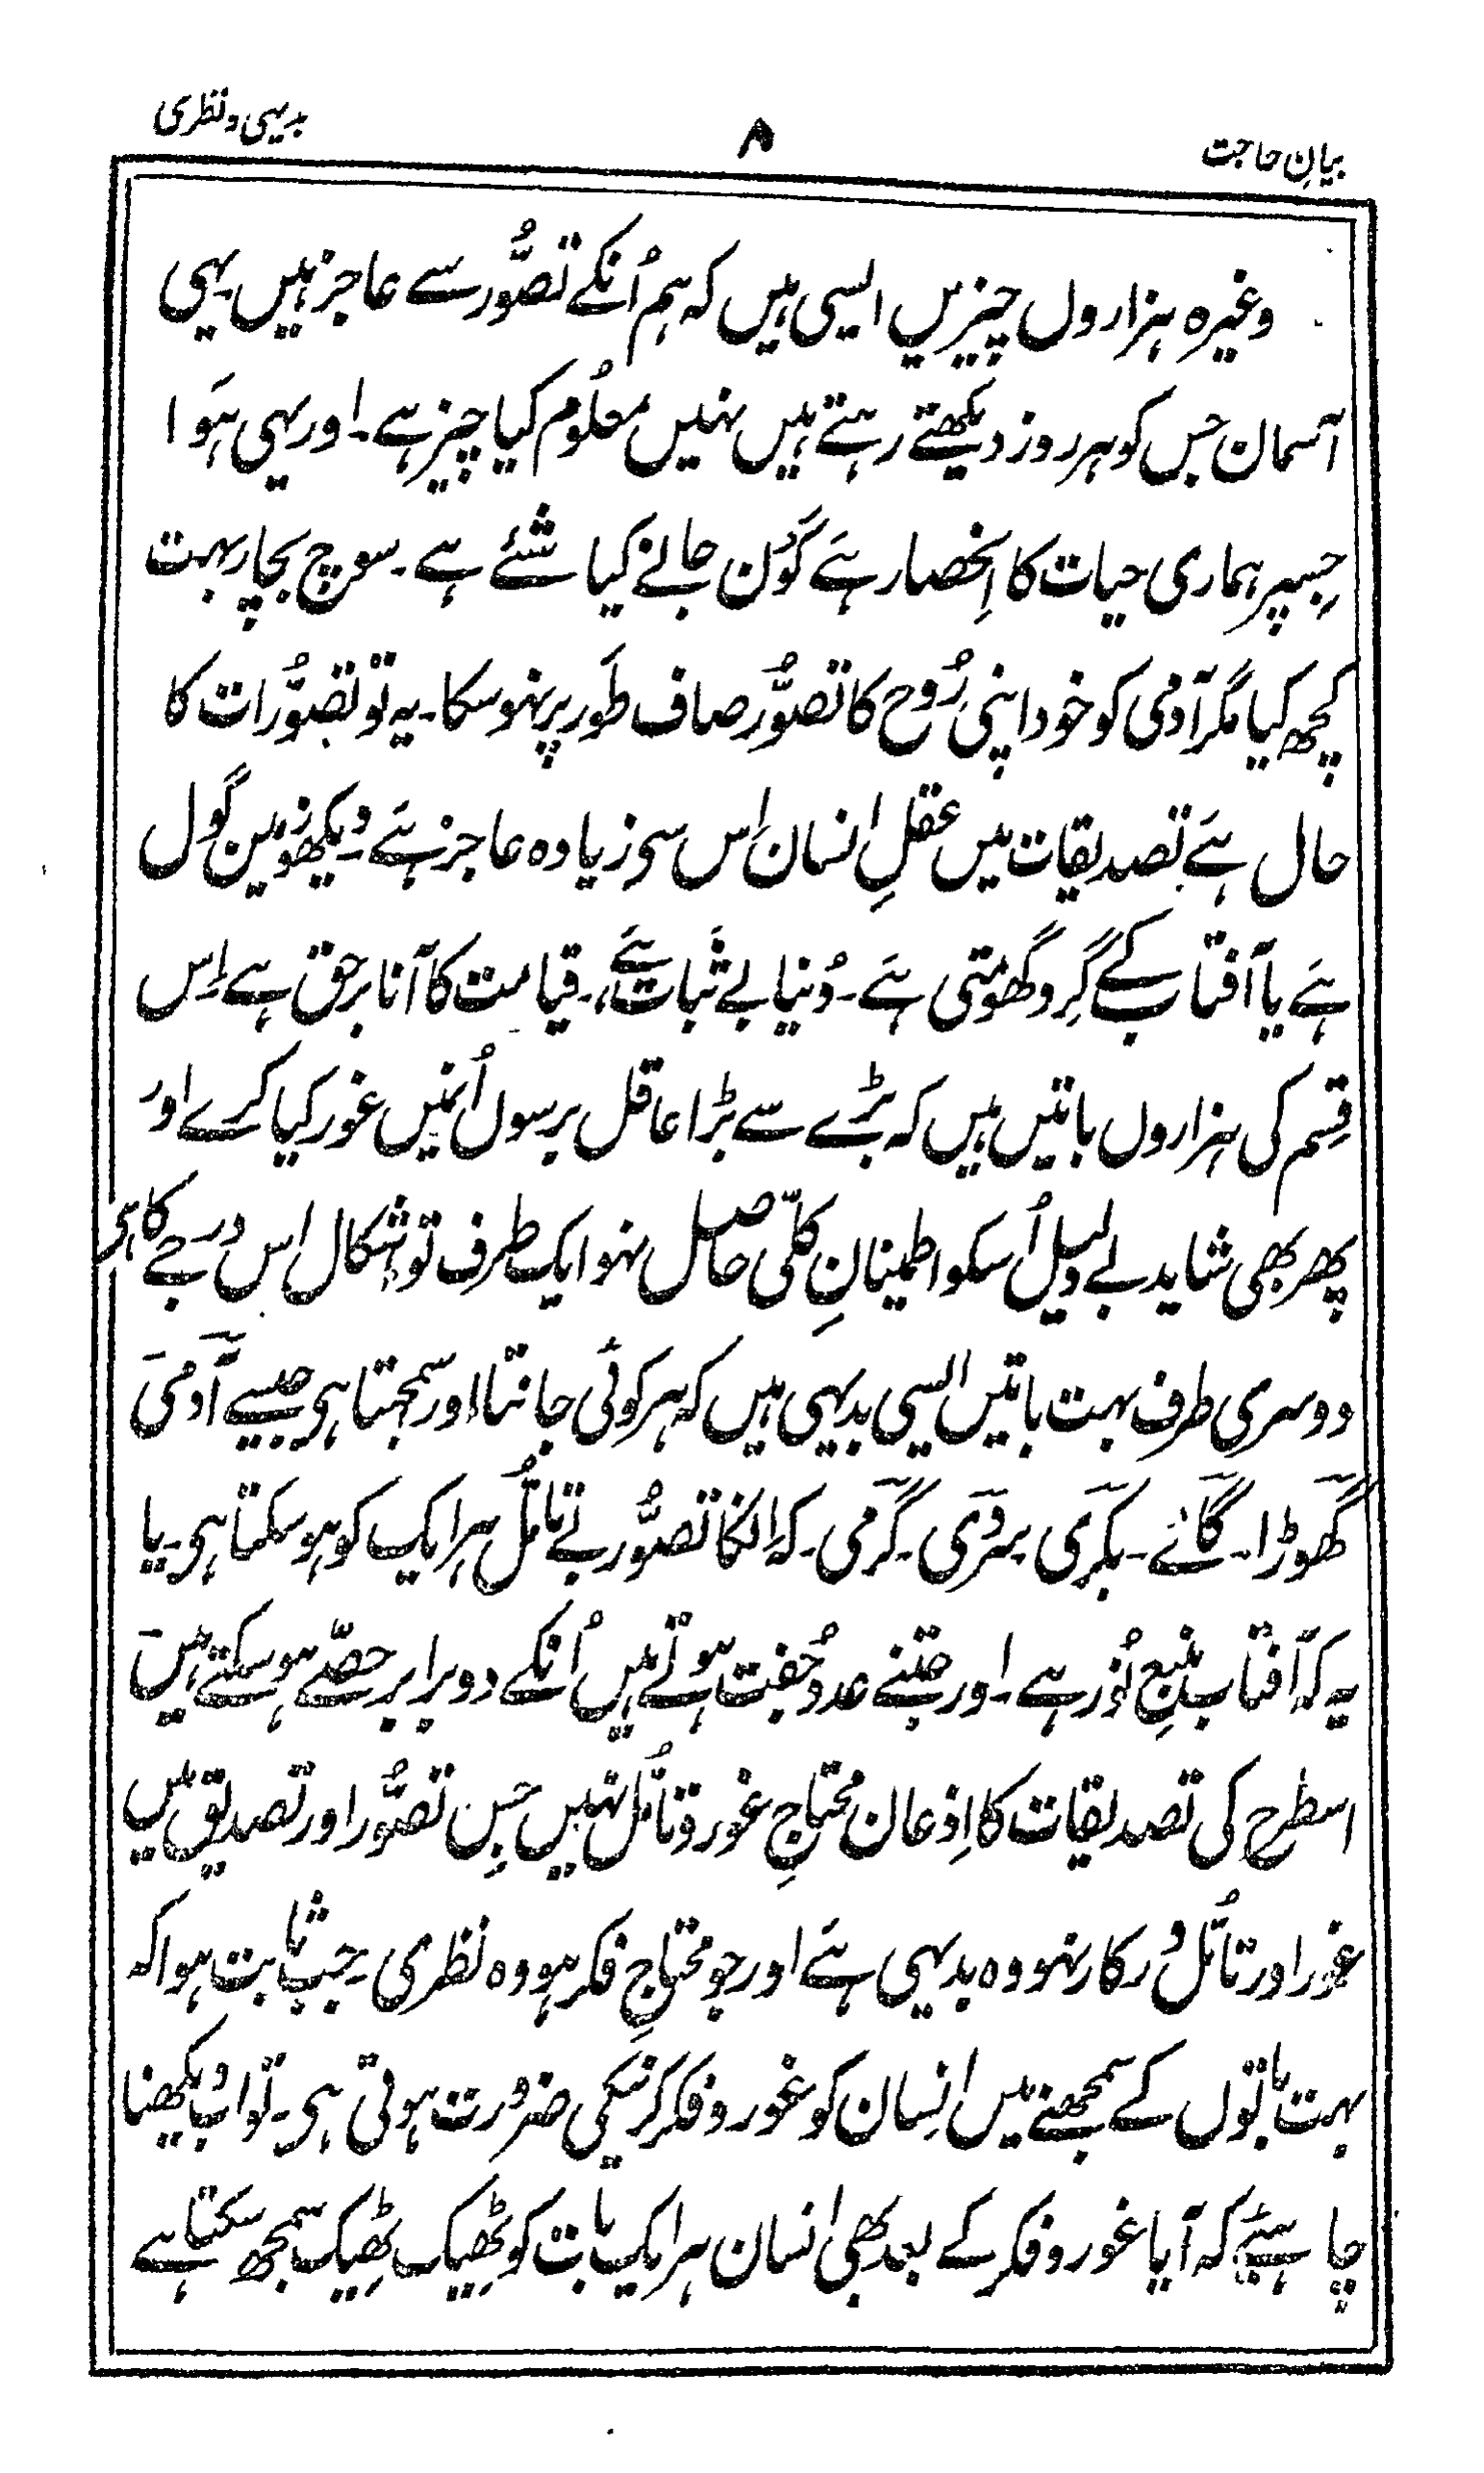 بیانِ حاجت
۸
بدیہی و نظری
وغیرہ ہزاروں چیزیں ایسی ہیں کہ ہم اُنکے تصوُّر سے عاجز ہیں۔ یہی
آسمان جس کو ہر روز دیکھتے رہتے ہیں نہیں معلُوم کیا چیز ہے۔ اور یہی ہَوا
جِسپر ہماری حیات کا اِنحصار ہَے کَون جانے کیا شئے ہے۔ سوچ بچار بہت
کچھ کیا مگر آدمی کو خود اپنی رُوح کا تصوُّر صاف طَور پر نہو سکا۔ یہ تو تصوُّرات کا
حال ہَے تصدیقات میں عقلِ انسان اِس سی زیادہ عاجز ہَے۔ دیکھو زمین گول
ہَے یا آفتاب کے گِرد گھومتی ہَے۔ دُنیا بے ثبات ہَے۔ قیامت کا آنا برحق ہے۔ اِس
قِسم کی ہزاروں باتیں ہیں کہ بڑے سے بڑا عاقل برسوں اُنمیں غور کیا کرے اور
پھر بھی شاید بے دلیل اُسکو اطمینانِ کلّی حاصل نہو ایک طرف تو اشکال اس درجے کا ہی
دوسری طرف بہت باتیں ایسی بدیہی ہیں کہ ہر کوئی جانتا اور سمجہتا ہی جیسے آدمی
گھوڑا۔ گائے۔ بکری۔ سردی۔ گرمی۔ کہ انکا تصوُّر بے تامُّل ہر ایک کو ہو سکتا ہی۔ یا
یہ کہ آفتاب منبعِ نُور ہے۔ اور جتنے عدد جُفت ہوتے ہیں اُنکے دو برابر حصّے ہو سکتے ہیں
اسطرح کی تصدیقات کا اِذعان محتاجِ غور و تامُّل نہیں جس تصوُّر اور تصدیق میں
غور اور تامُّل درکار نہو وہ بدیہی ہَے اور جو محتاجِ فکر ہو وہ نظری۔ جب ثابت ہوا کہ
بہت باتوں کے سمجھنے میں اِنسان کو غور و فکر کرنیکی ضرورت ہوتی ہی۔ تو اب دیکھنا
چاہیئے کہ آیا غور و فکر کے بعد بھی انسان ہر ایک بات کو ٹھِیک ٹھِیک سمجھ سکتا ہے